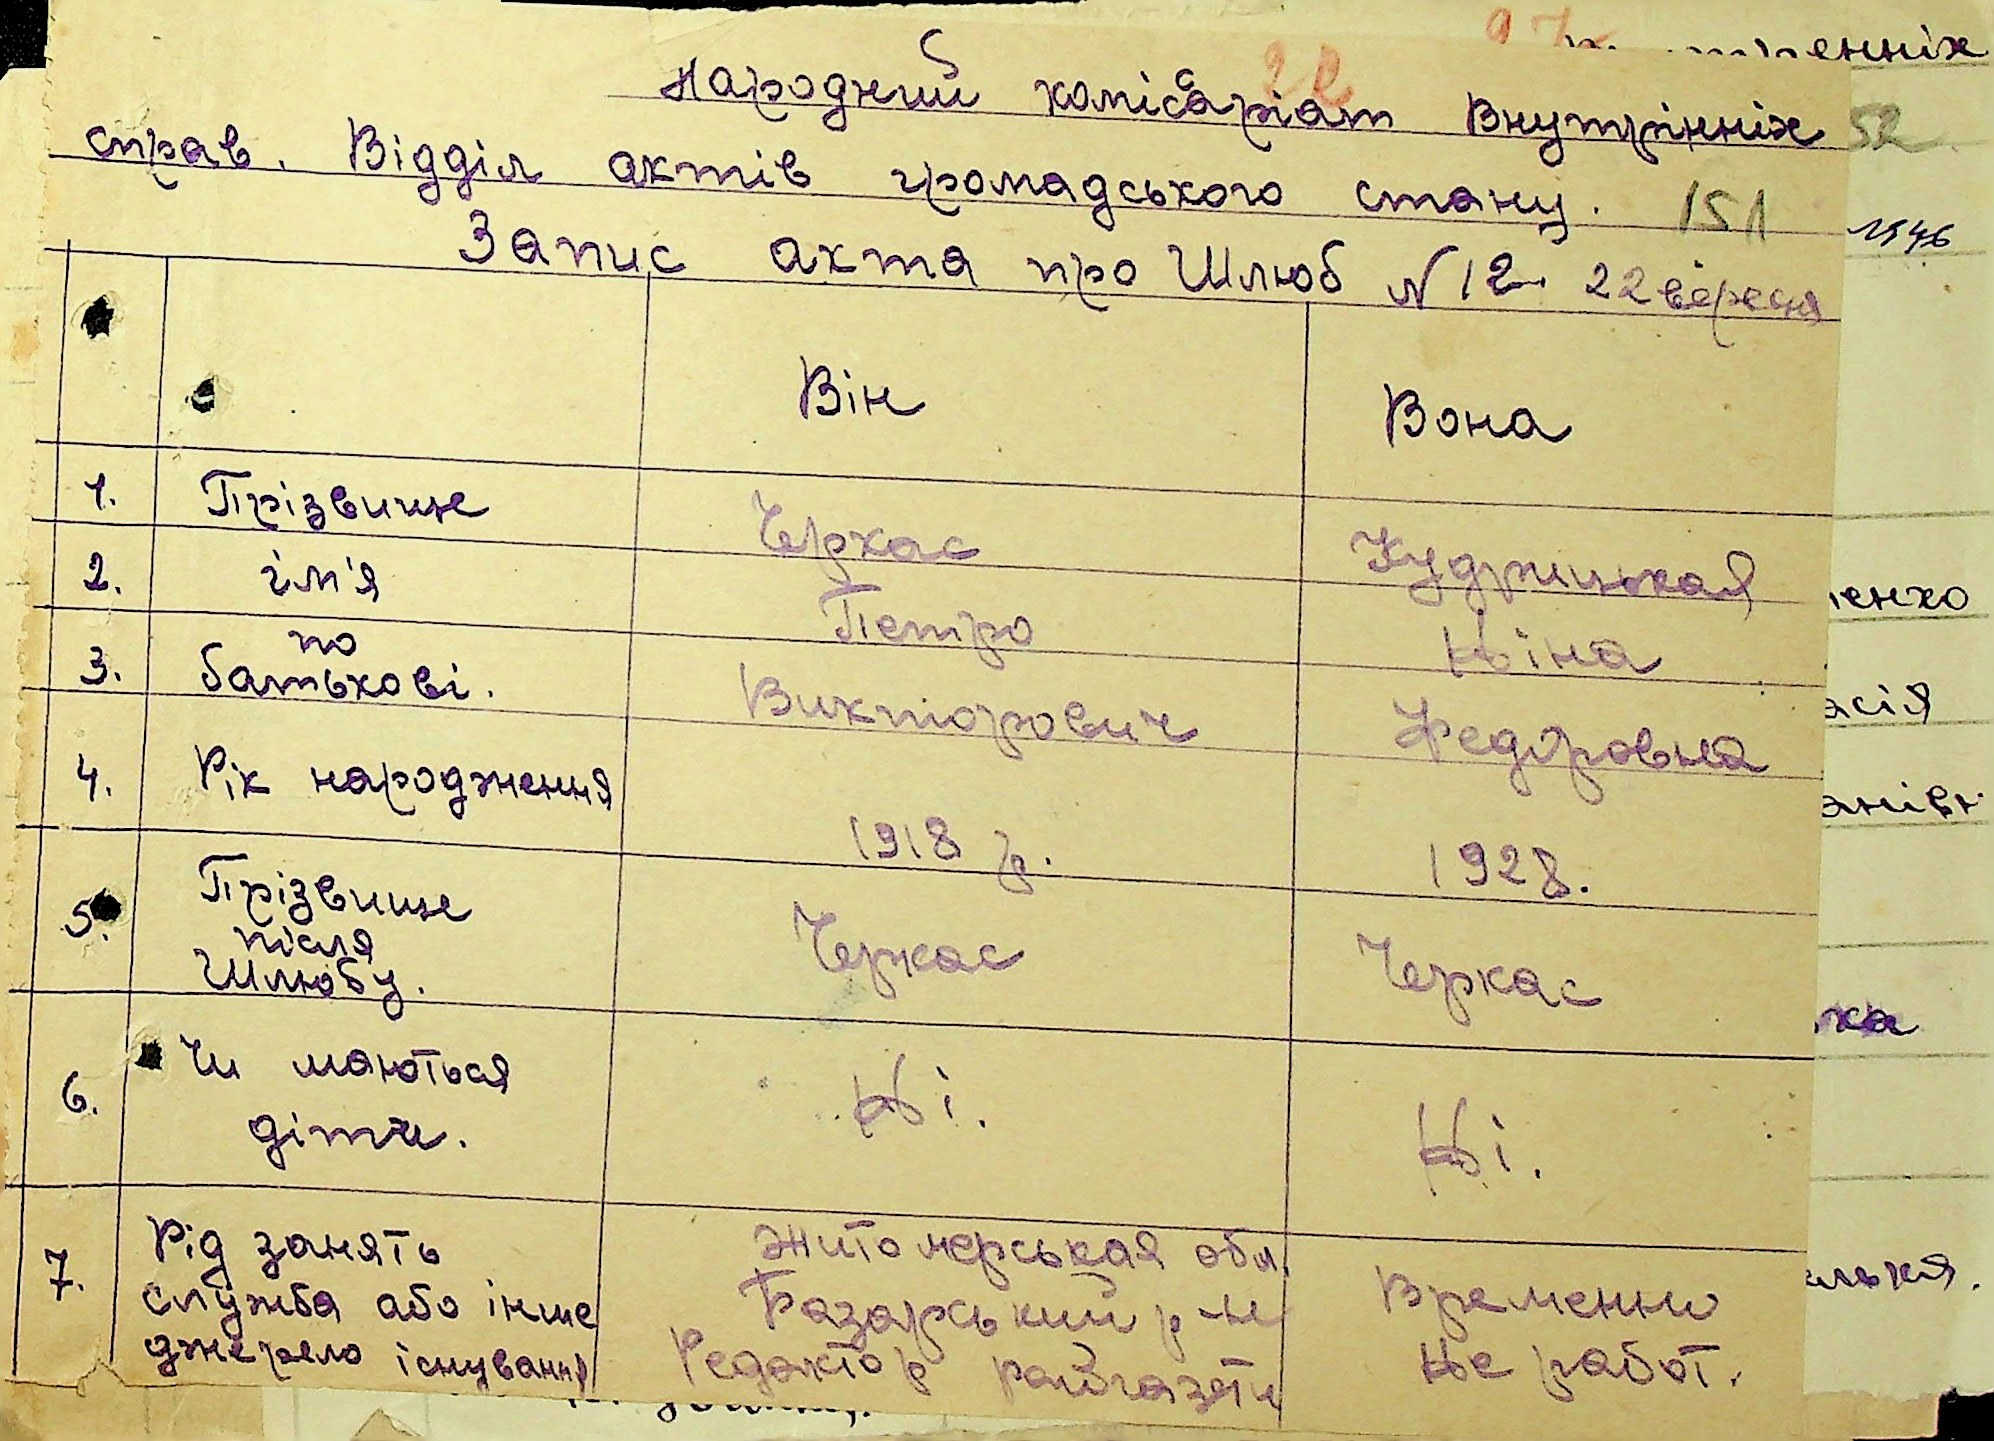 Народний комісаріат Внутрінніх
справ. Відділ актів громадського стану. 151
Запис акта про Шлюб N 12. 22 вересня
Він Вона
1. Прізвище Черкас Кудрицькая
2. ім'я Петро Ніна
3. по батькові. Викторович Федоровна
4. Рік народження 1918 р. 1928.
5. Прізвище
після
Шлюбу. Черкас Черкас
6. Чи маються
діти. Ні. Ні.
7. Рід занять
служба або інше
джерело існування
Житомерськая обл.
Базарський р-н
Редактор райгазети
Временно
не работ.
52
1946
енко
асія
анівн
ька